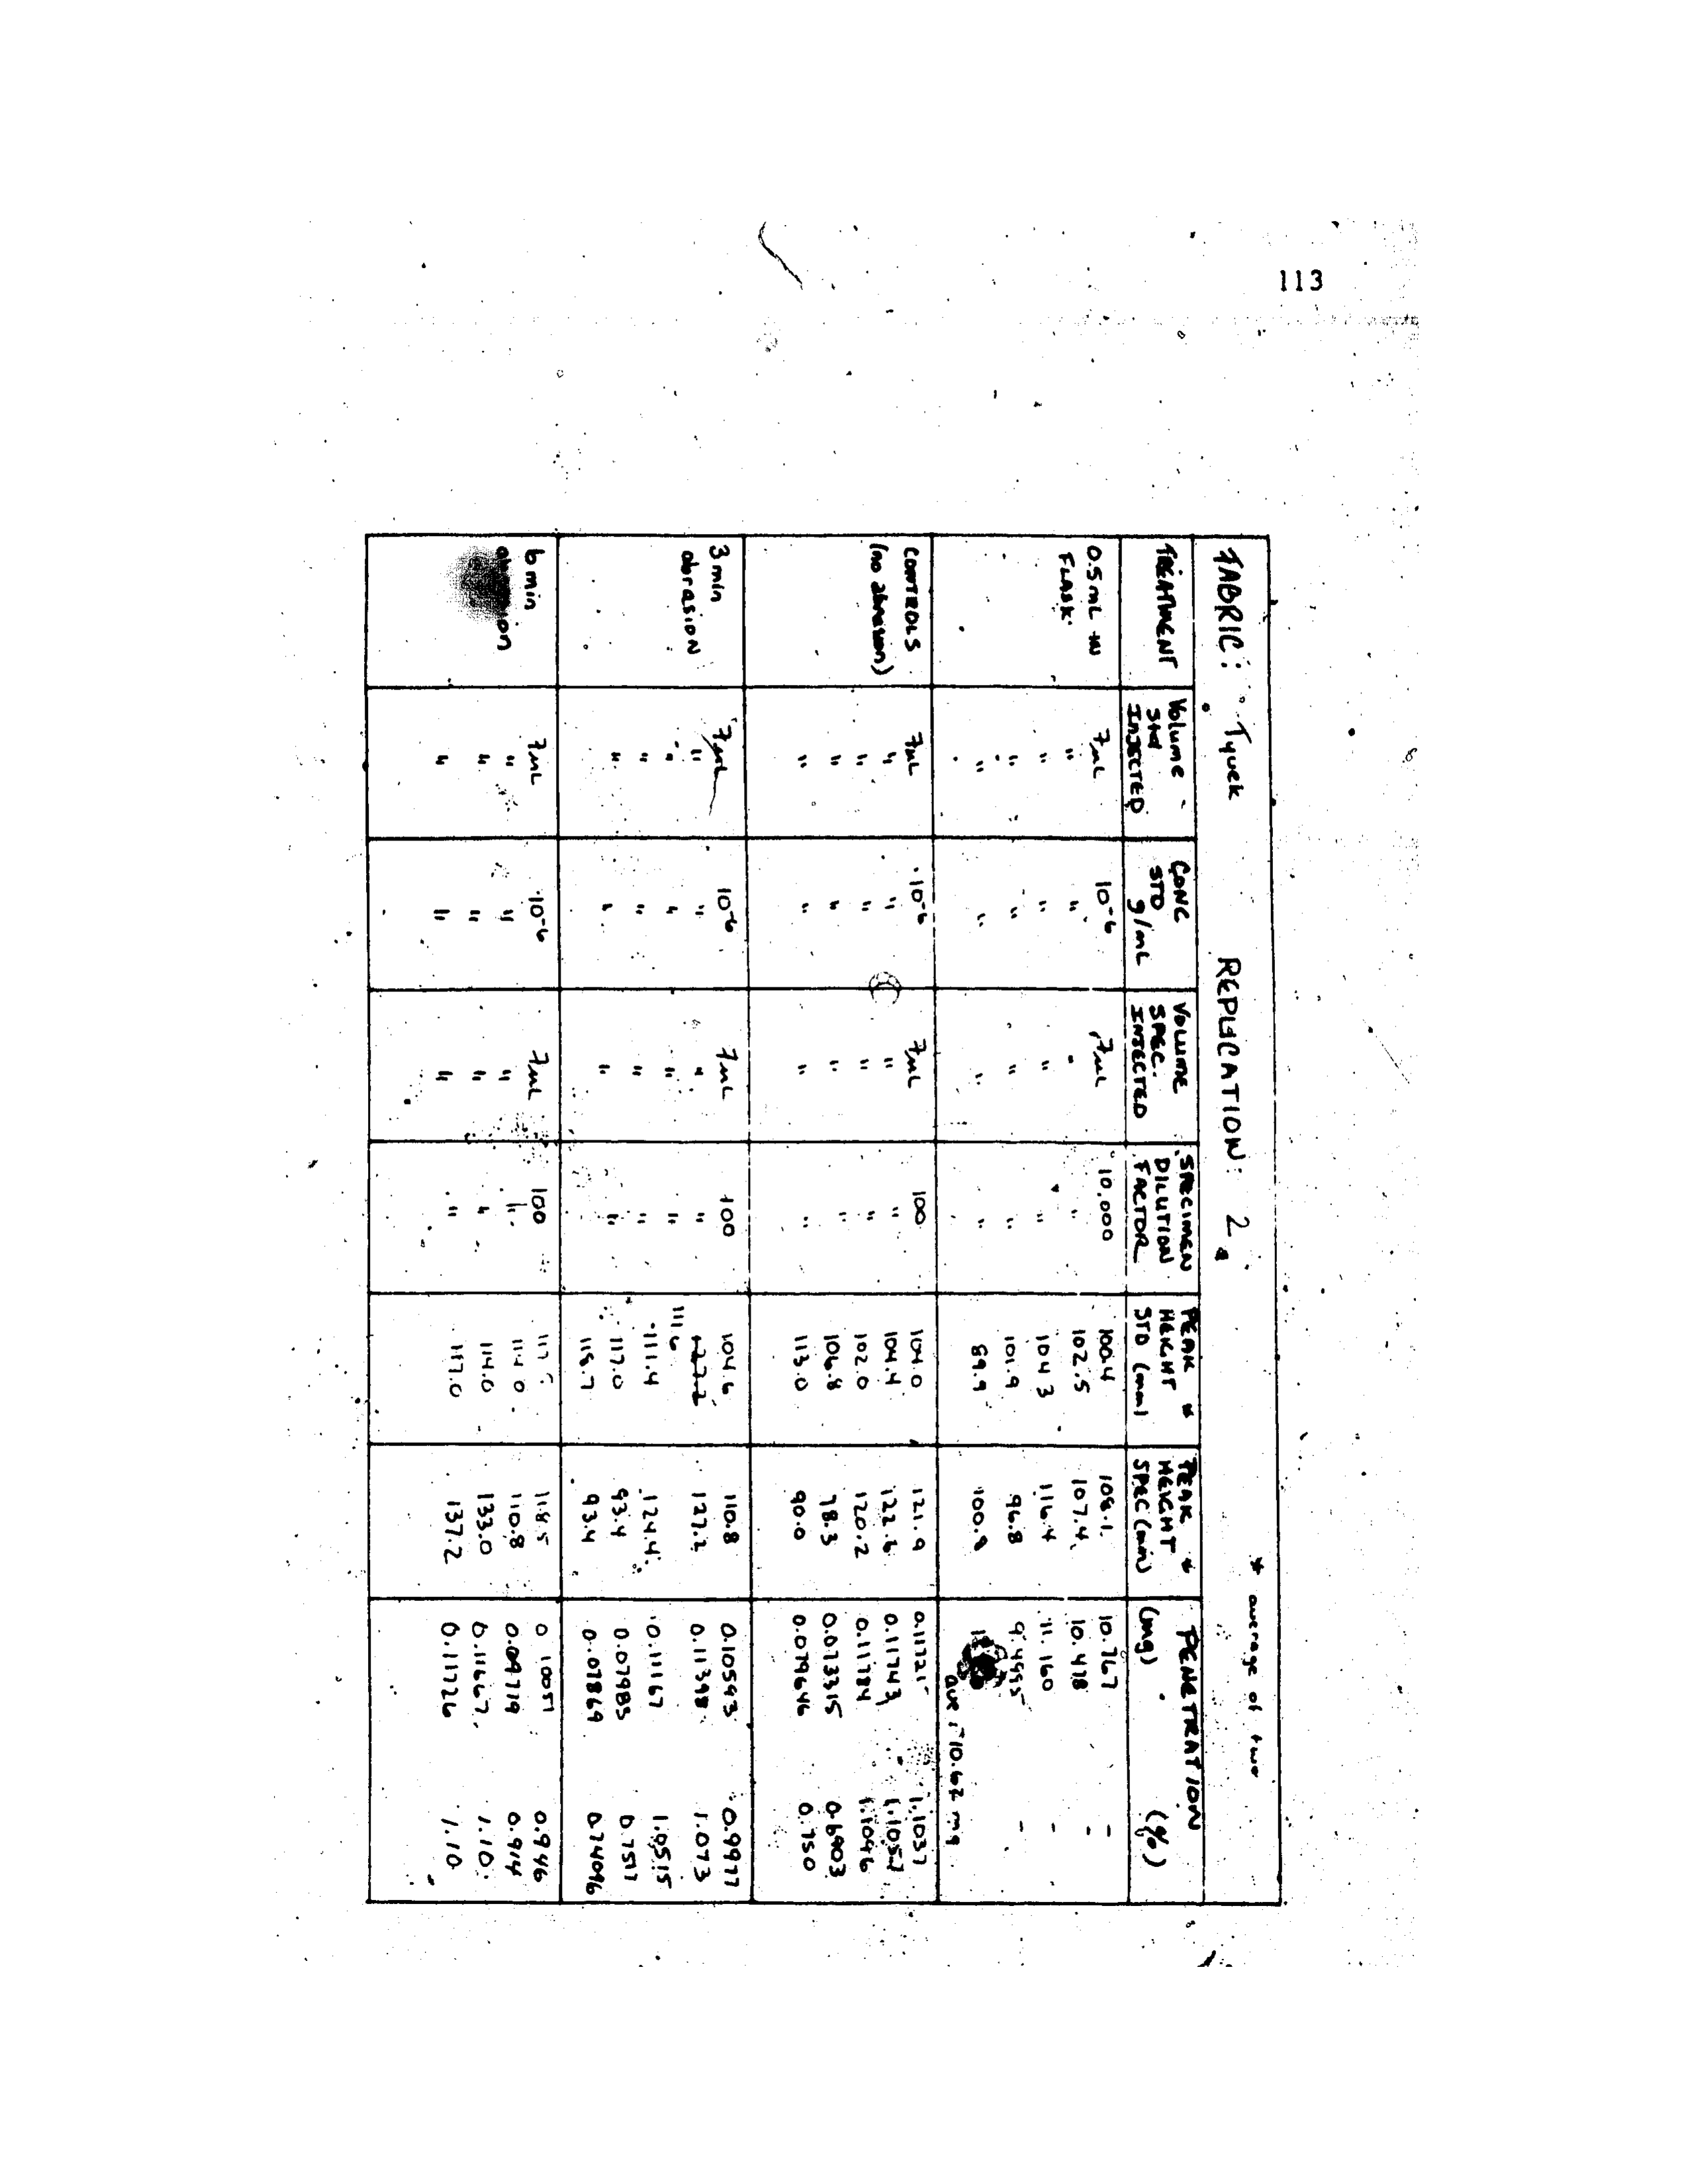 113
FABRIC: Tyvek REPLICATION: 2 * average of two
TREATMENT Volume Std INJECTED CONC STD g/mL VOLUME SPEC. INJECTED SPECIMEN DILUTION FACTOR PEAK * HEIGHT STD (mm) PEAK * HEIGHT SPEC (mm) PENETRATION (mg) (%)
0.5mL IN FLASK 7uL 10-6 7uL 10,000 100.4 108.1 10.767 -
" " " " 102.5 107.4 10.478 -
" " " " 104.3 116.4 11.160 -
" " " " 101.9 96.8 9.4995 -
" " " " 89.9 100.9
ave = 10.62 mg
CONTROLS (no abrasion) 7uL 10-6 7uL 100 104.0 121.9 0.11721 1.1037
" " " " 104.4 122.6 0.11743 1.1057
" " " " 102.0 120.2 0.11784 1.1096
" " " " 106.8 78.3 0.073315 0.6903
" " " " 113.0 90.0 0.079646 0.750
3 min abrasion 7uL 10-6 7uL 100 104.6 110.8 0.10593 0.9977
" " " " 111.6 127.2 0.11398 1.073
" " " " 111.4 124.4 0.11167 1.0515
" " " " 117.0 93.4 0.07983 0.7517
" " " " 118.7 93.4 0.07869 0.74096
6 min 7uL 10-6 7uL 100 118.5 0.10051 0.946
" " " " 114.0 110.8 0.09719 0.914
" " " " 114.0 133.0 0.11667 1.10
" " " " 117.0 137.2 0.11726 1.10